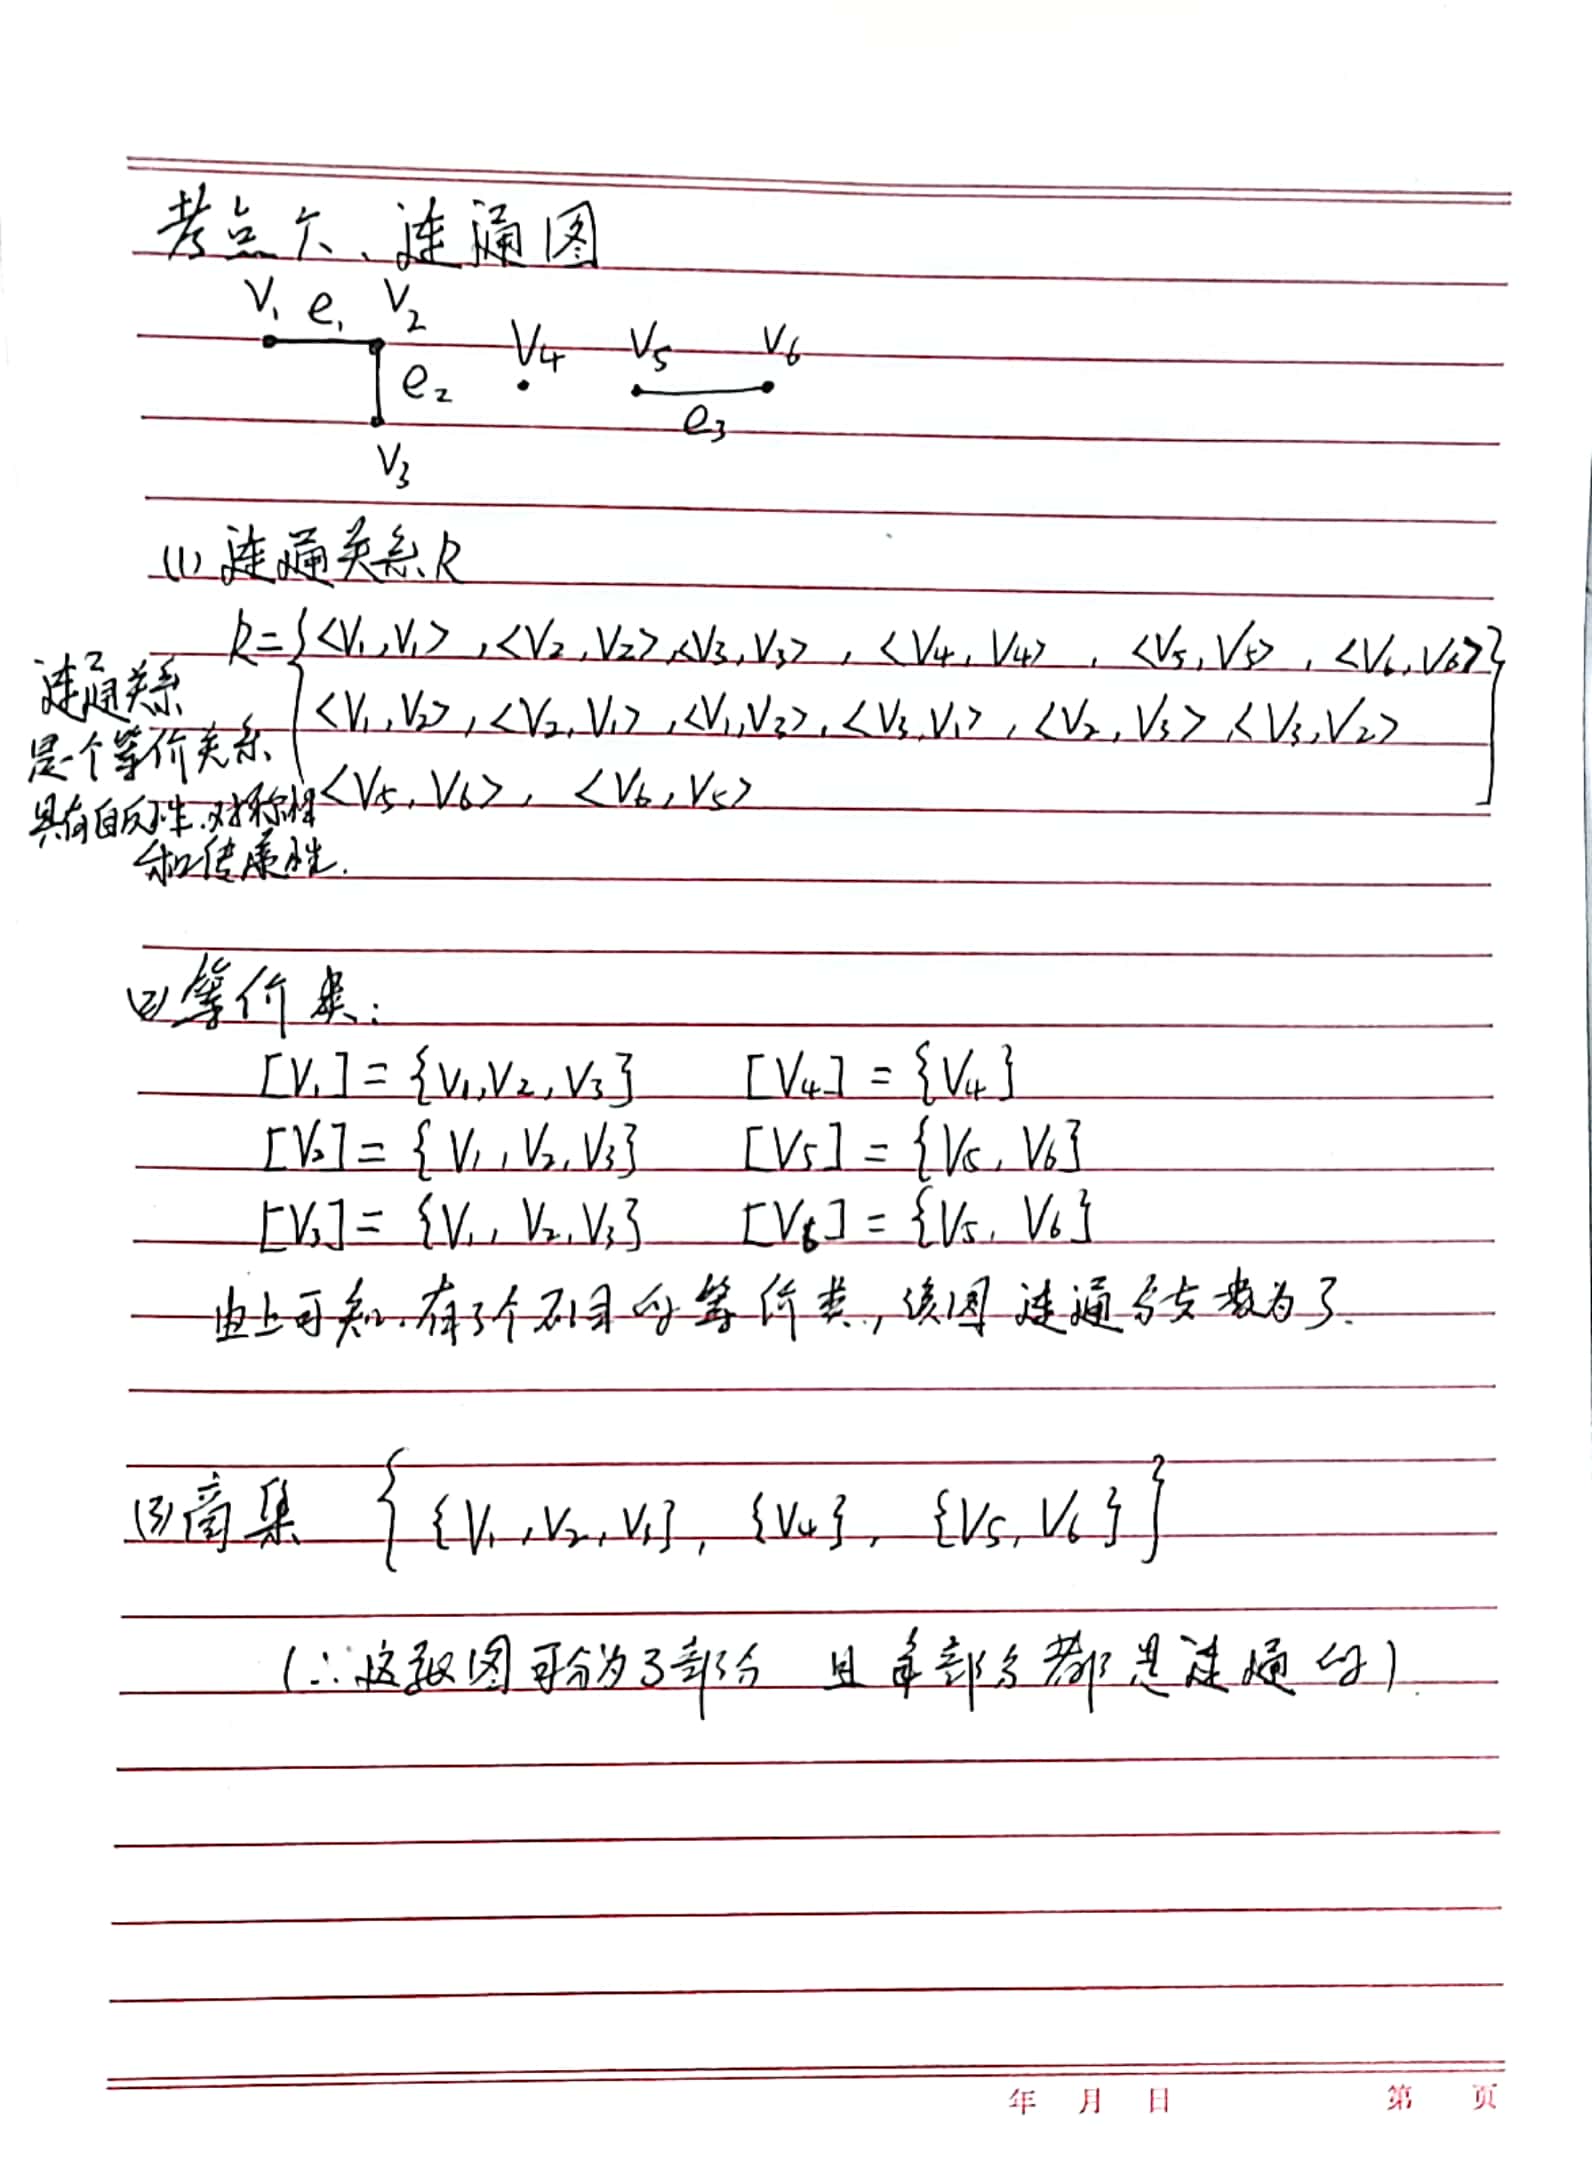 考点六、连通图
V₁ e₁ V₂
V₄ V₅ V₆
e₂
e₃
V₃
(1) 连通关系R
R={<V₁,V₁>,<V₂,V₂>,<V₃,V₃>,<V₄,V₄>,<V₅,V₅>,<V₆,V₆>
<V₁,V₂>,<V₂,V₁>,<V₁,V₃>,<V₃,V₁>,<V₂,V₃>,<V₃,V₂>
<V₅,V₆>,<V₆,V₅>}
连通关系
是个等价关系
具有自反性、对称性
和传递性.
(2) 等价类:
[V₁]={V₁,V₂,V₃} [V₄]={V₄}
[V₂]={V₁,V₂,V₃} [V₅]={V₅,V₆}
[V₃]={V₁,V₂,V₃} [V₆]={V₅,V₆}
由上可知,有3个不同的等价类,该图连通分支数为3.
(3) 商集 {{V₁,V₂,V₃},{V₄},{V₅,V₆}}
(∴这张图可分为3部分 且每部分都是连通的).
年 月 日 第 页